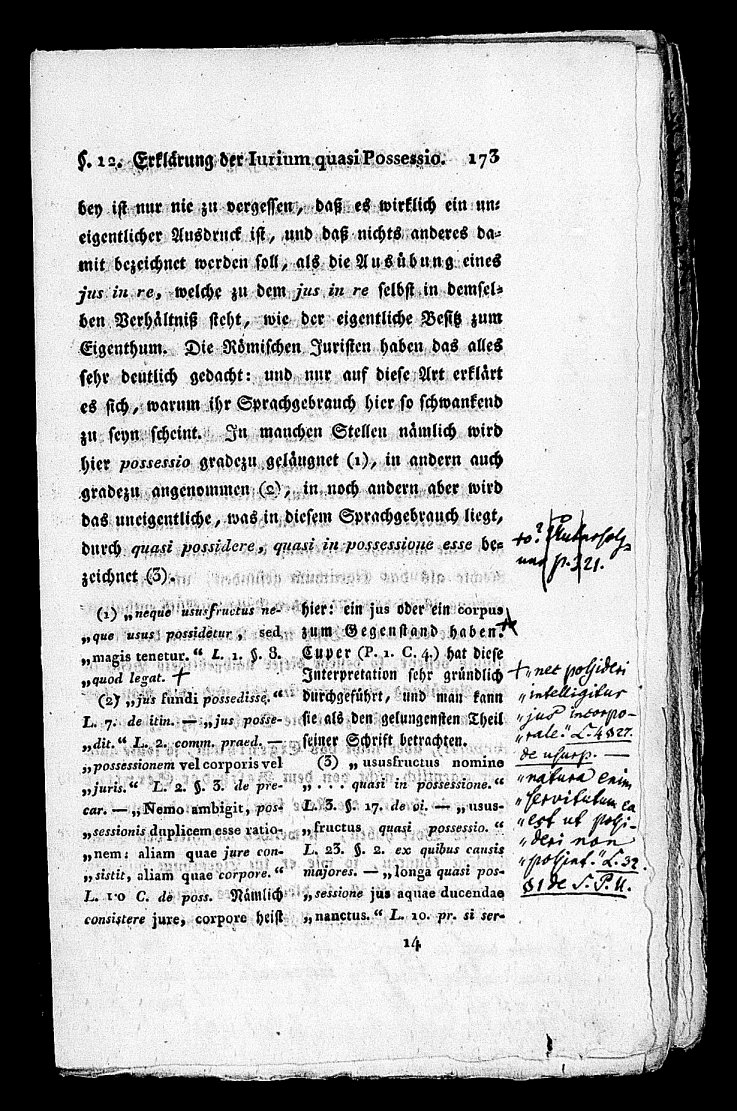 §. 12. Erklärung der Iurium quasi Possessio. 173
bey ist nur nie zu vergessen, daß es wirklich ein un-
eigentlicher Ausdruck ist, und daß nichts anderes da-
mit bezeichnet werden soll, als die Ausübung eines
jus in re, welche zu dem jus in re selbst in demsel-
ben Verhältniß steht, wie der eigentliche Besitz zum
Eigenthum. Die Römischen Juristen haben das alles
sehr deutlich gedacht: und nur auf diese Art erklärt
es sich, warum ihr Sprachgebrauch hier so schwankend
zu seyn scheint. In manchen Stellen nämlich wird
hier possessio gradezu geläugnet (1), in andern auch
gradezu angenommen (2), in noch andern aber wird
das uneigentliche, was in diesem Sprachgebrauch liegt,
durch quasi possidere, quasi in possessione esse be-
zeichnet (3).
(1) „neque ususfructus ne-
„que usus possidetur, sed
„magis tenetur.“ L. 1. §. 8.
„quod legat. +
(2) „jus fundi possedisse.“
L. 7. de itin. — „jus posse-
„dit.“ L. 2. comm. praed. —
„possessionem vel corporis vel
„juris.“ L. 2. §. 3. de pre-
car. — „Nemo ambigit, pos-
„sessionis duplicem esse ratio-
„nem: aliam quae jure con-
„sistit, aliam quae corpore.“
L. 10 C. de poss. Nämlich
consistere jure, corpore heist
hier: ein jus oder ein corpus
zum Gegenstand haben.
Cuper (P. 1. C. 4.) hat diese
Interpretation sehr gründlich
durchgeführt, und man kann
sie als den gelungensten Theil
seiner Schrift betrachten.
(3) „ususfructus nomine
„... quasi in possessione.“
L. 3. §. 17. de vi. — „usus-
„fructus quasi possessio.“
L. 23. §. 2. ex quibus causis
majores. — „longa quasi pos-
„sessione jus aquae ducendae
„nanctus.“ L. 10. pr. si ser-
14
p. 121.
+ „nec possideri
„intelligitur
„jus incorpo-
„rale.“ L. 4 § 27.
de usurp. —
„natura enim
„servitutum ea
„est ut possi-
„deri non
„possint.“ L. 32.
§ 1 de S. P. U.